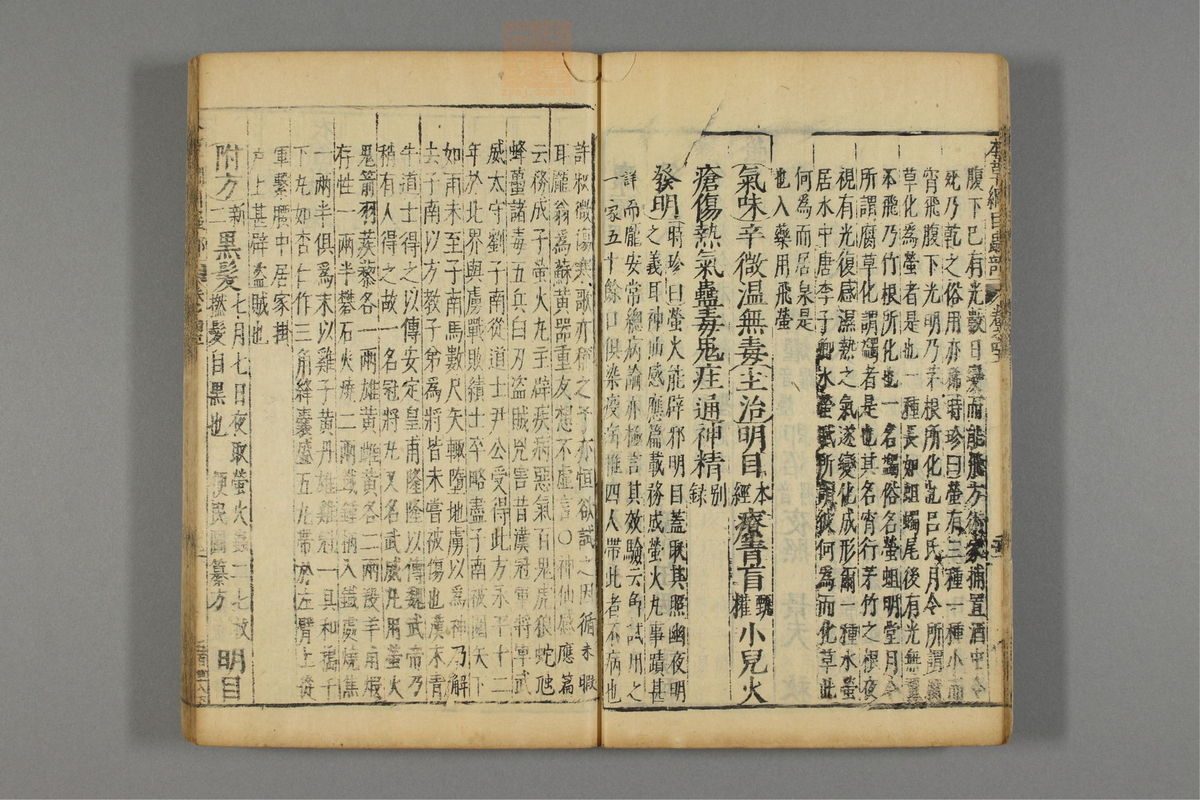 腹下巳有光數日變而能飛方術家捕置酒中令
死乃乾之俗用亦稀時珍曰螢有三種一種小而
宵飛腹下光明乃茅根所化也呂氏月令所謂腐
草化為螢者是也一種長如蛆蠋尾後有光無翼
不飛乃竹根所化也一名蠲俗名螢蛆明堂月令
所謂腐草化為蠲者是也其名宵行茅竹之根夜
視有光復感濕熱之氣遂變化成形爾一種水螢
居水中唐李子卿水螢賦所謂彼何為而化草此
何為而居泉是
也入藥用飛螢
氣味辛微温無毒主治明目本經療青盲甄權小兒火
瘡傷熱氣蠱毒鬼疰通神精別錄
發明時珍曰螢火能辟邪明目蓋取其照幽夜明
之義耳神仙感應篇載務成螢火丸事蹟甚
詳而龐安常總病論亦極言其效驗云曾試用之
一家五十餘口俱染疫病惟四人帶此者不病也
許叔微傷寒歌亦稱之予亦恒欲試之因循未暇
耳龐翁為蘇黃器重友想不虛言○神仙感應篇
云務成子螢火丸主辟疾病惡氣百鬼虎狼蛇虺
蜂蠆諸毒五兵白刃盗賊兇害昔漢冠軍將軍武
威太守劉子南從道士尹公受得此方永平十二
年於北界與虜戰敗績士卒略盡子南被圍矢下
如雨未至子南馬數尺矢輒墮地虜以為神乃解
去子南以方教子弟為將皆未嘗被傷也漢末青
牛道士得之以傳安定皇甫隆隆以傳魏武帝乃
稍有人得之故一名冠將丸又名武威丸用螢火
鬼箭羽蒺藜各一兩雄黃雌黃各二兩羖羊角煅
存性一兩半礬石火燒二兩鐵錘柄入鐵處燒焦
一兩半俱為末以雞子黃丹雄雞冠一具和擣千
下丸如杏仁作三角絳囊盛五丸帶於左臂上從
軍繫腰中居家掛
户上甚辟盗賊也
附方新二黑髮七月七日夜取螢火蟲二七枚撚髮自黑也 便民圖纂方 明目